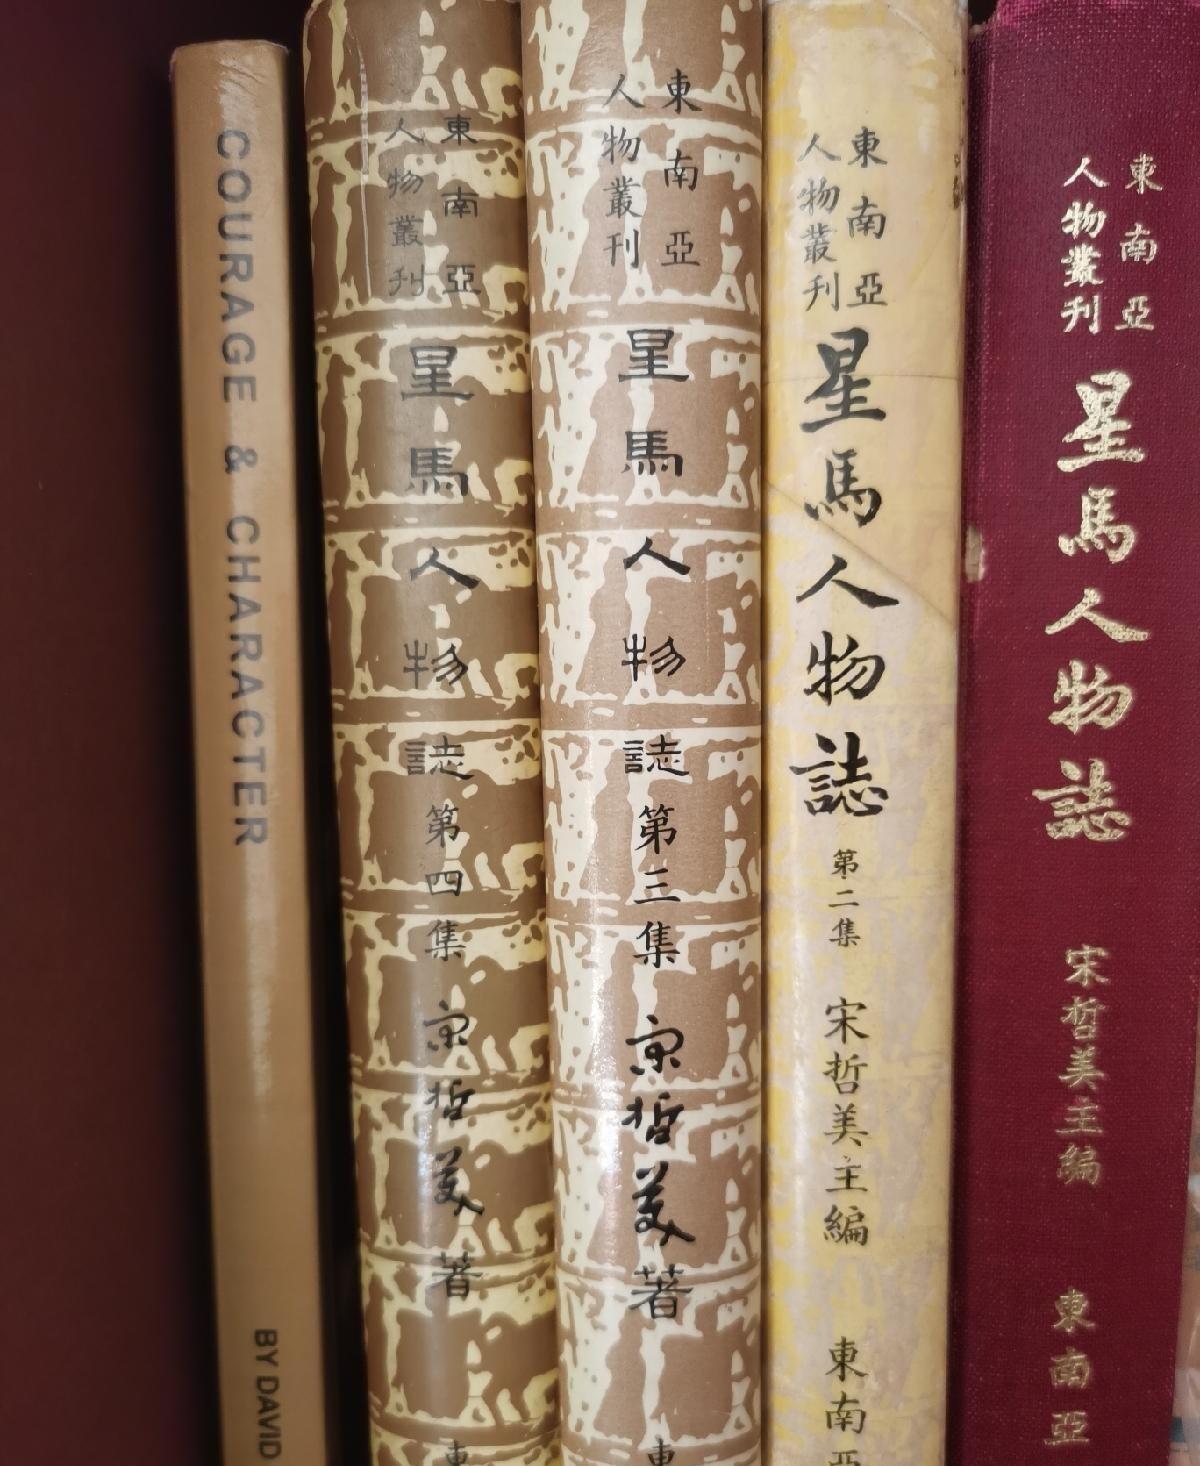 COURAGE & CHARACTER
BY DAVID
東南亞
人物叢刊
星馬人物誌
第四集
宋哲美著
東
東南亞
人物叢刊
星馬人物誌
第三集
宋哲美著
東
東南亞
人物叢刊
星馬人物誌
第二集
宋哲美主編
東南亞
東南亞
人物叢刊
星馬人物誌
宋哲美主編
東南亞